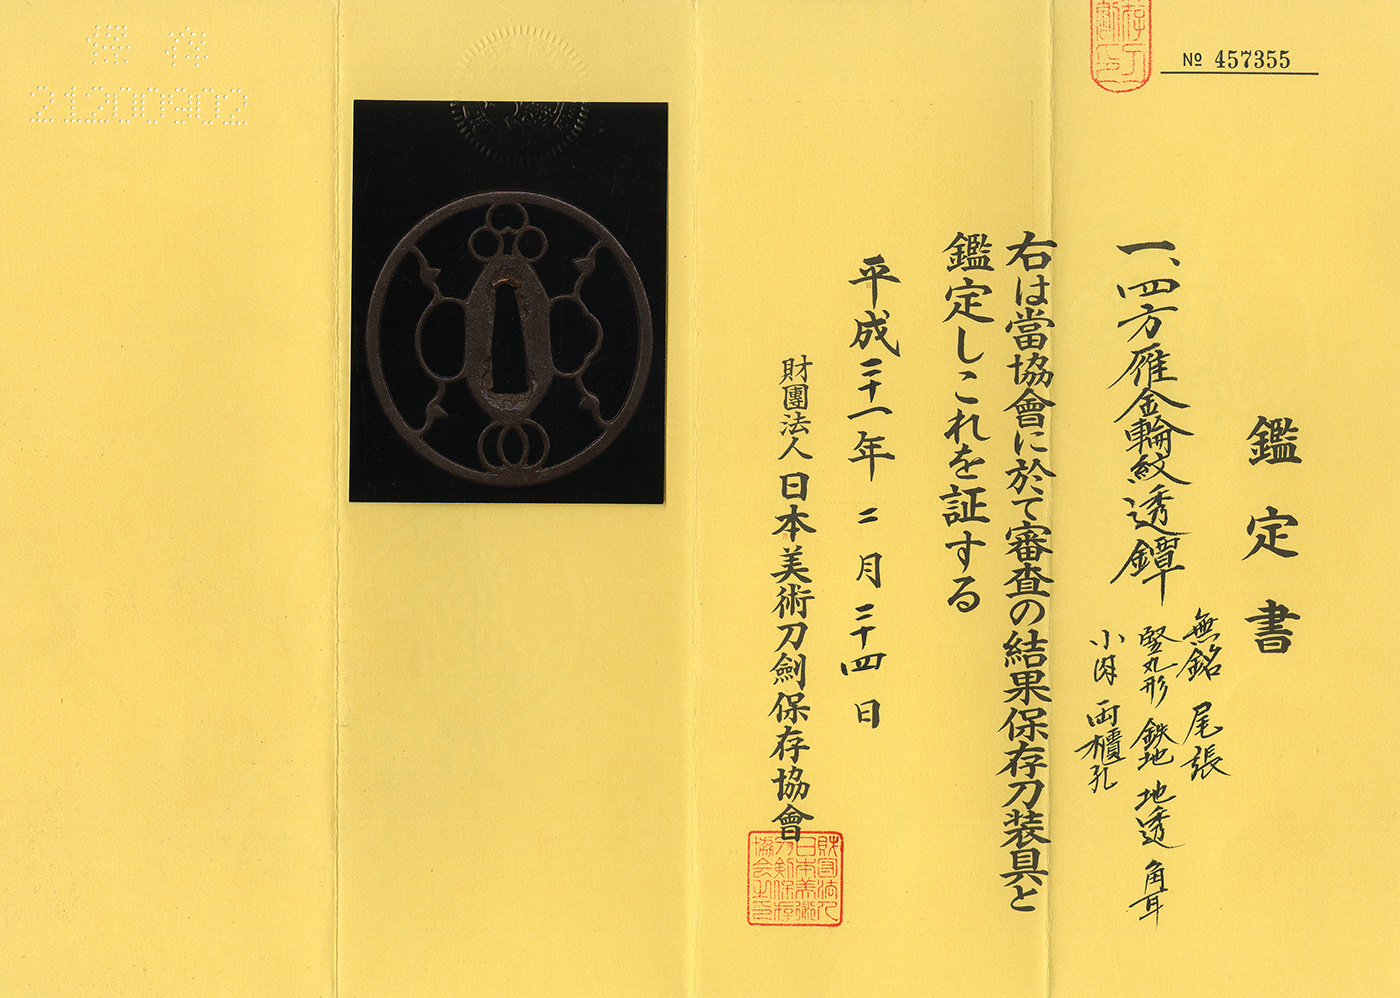 保存
21200902
№ 457355
鑑定書
一、四方雁金輪紋透鐔
無銘 尾張
竪丸形 鉄地 地透 角耳
小肉 両櫃孔
右は當協會に於て審査の結果保存刀装具と
鑑定しこれを証する
平成二十一年 二月 二十四日
財團法人 日本美術刀劍保存協會
財団法人
日本美術
刀剣保存
協会之印